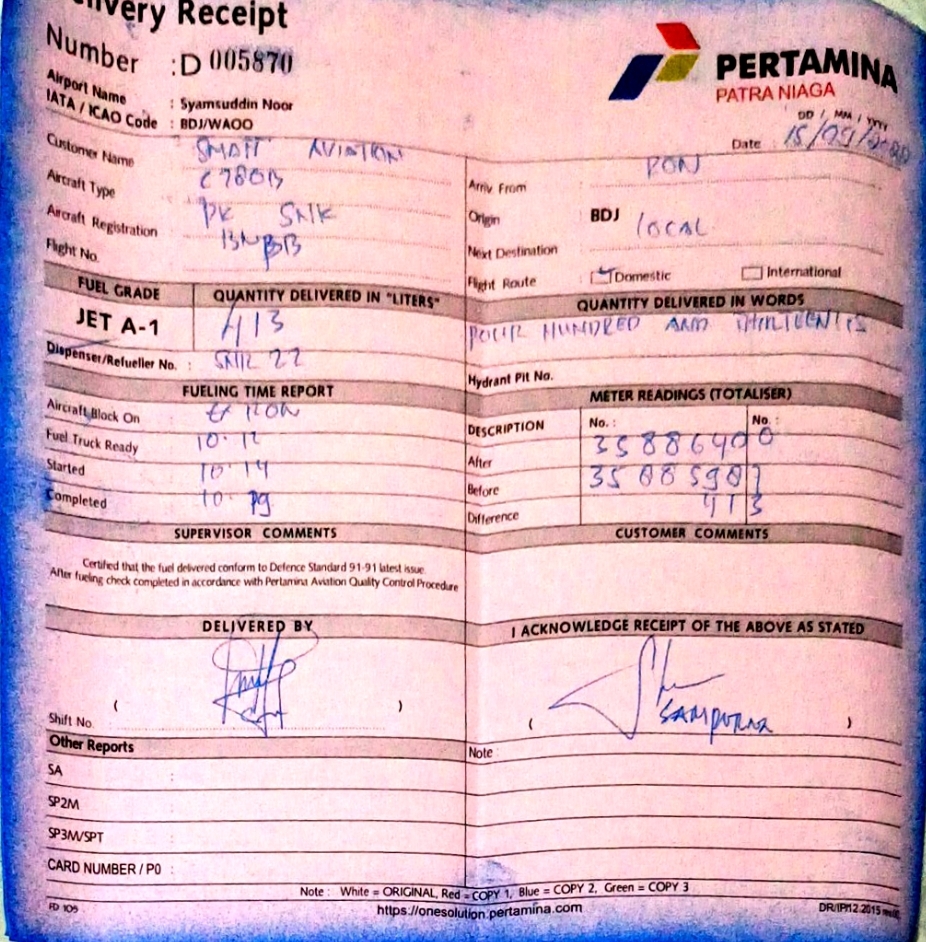 Delivery Receipt
Number : D 005870
PERTAMINA
PATRA NIAGA
Airport Name : Syamsuddin Noor
IATA / ICAO Code : BDJ/WAOO
DD / MM / YYYY
Date : 15/09/
Customer Name SMART AVIATION
Aircraft Type
Aircraft Registration PK SNK
Flight No.
Arriv From RON
Origin BDJ
Next Destination LOCAL
Flight Route Domestic International
FUEL GRADE QUANTITY DELIVERED IN "LITERS" QUANTITY DELIVERED IN WORDS
JET A-1 413 FOUR HUNDRED AND
Dispenser/Refueller No. : 22
Hydrant Pit No.
FUELING TIME REPORT
METER READINGS (TOTALISER)
Aircraft Block On RON
Fuel Truck Ready 10.12
Started 10.14
Completed 10.
DESCRIPTION No. : No. :
After 35886400
Before 3588598
Difference 413
SUPERVISOR COMMENTS CUSTOMER COMMENTS
Certified that the fuel delivered conform to Defence Standard 91-91 latest issue.
After fueling check completed in accordance with Pertamina Aviation Quality Control Procedure
DELIVERED BY I ACKNOWLEDGE RECEIPT OF THE ABOVE AS STATED
( )
( SAMPURNA )
Shift No.
Other Reports Note :
SA :
SP2M :
SP3M/SPT :
CARD NUMBER / PO :
Note : White = ORIGINAL, Red = COPY 1, Blue = COPY 2, Green = COPY 3
FD 105 https://onesolution.pertamina.com